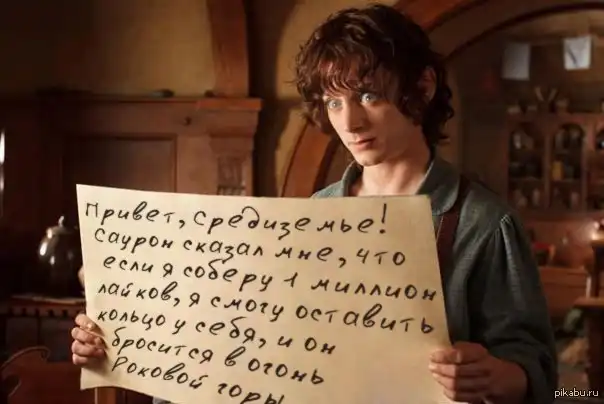 Привет, Средиземье!
Саурон сказал мне, что
если я соберу 1 миллион
лайков, я смогу оставить
кольцо у себя, и он
бросится в огонь
Роковой горы
pikabu.ru